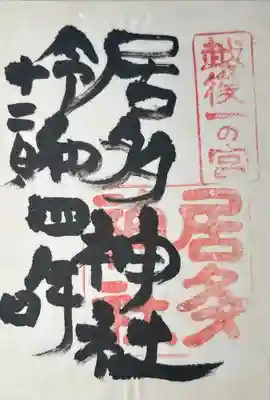 越後一の宮
居多神社
居多
神社
令和四年
十二月